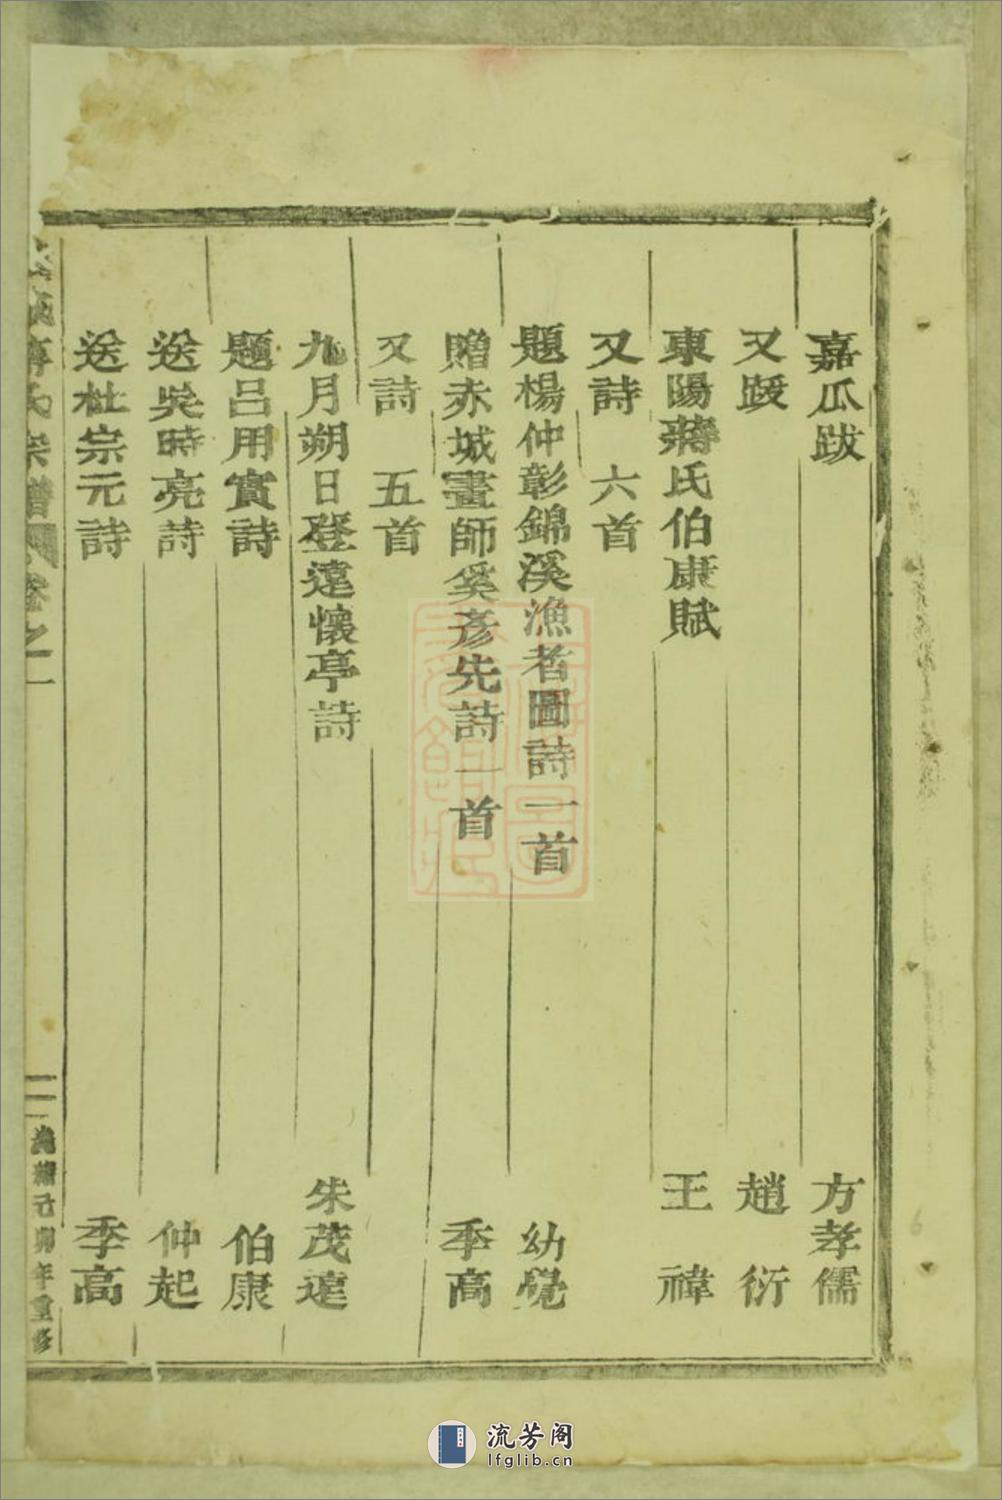 嘉瓜跋 方孝儒
又跋 趙衍
東陽蔣氏伯康賦 王禕
又詩 六首
題楊仲彰錦溪漁者圖詩一首 幼覺
贈赤城畫師奚彥先詩一首 季高
又詩 五首
九月朔日登遠懷亭詩 朱茂達
題呂用賓詩 伯康
送吳時亮詩 仲起
送杜宗元詩 季高
氏宗譜 卷之一 二 己卯年重修
流芳阁
lfglib.cn